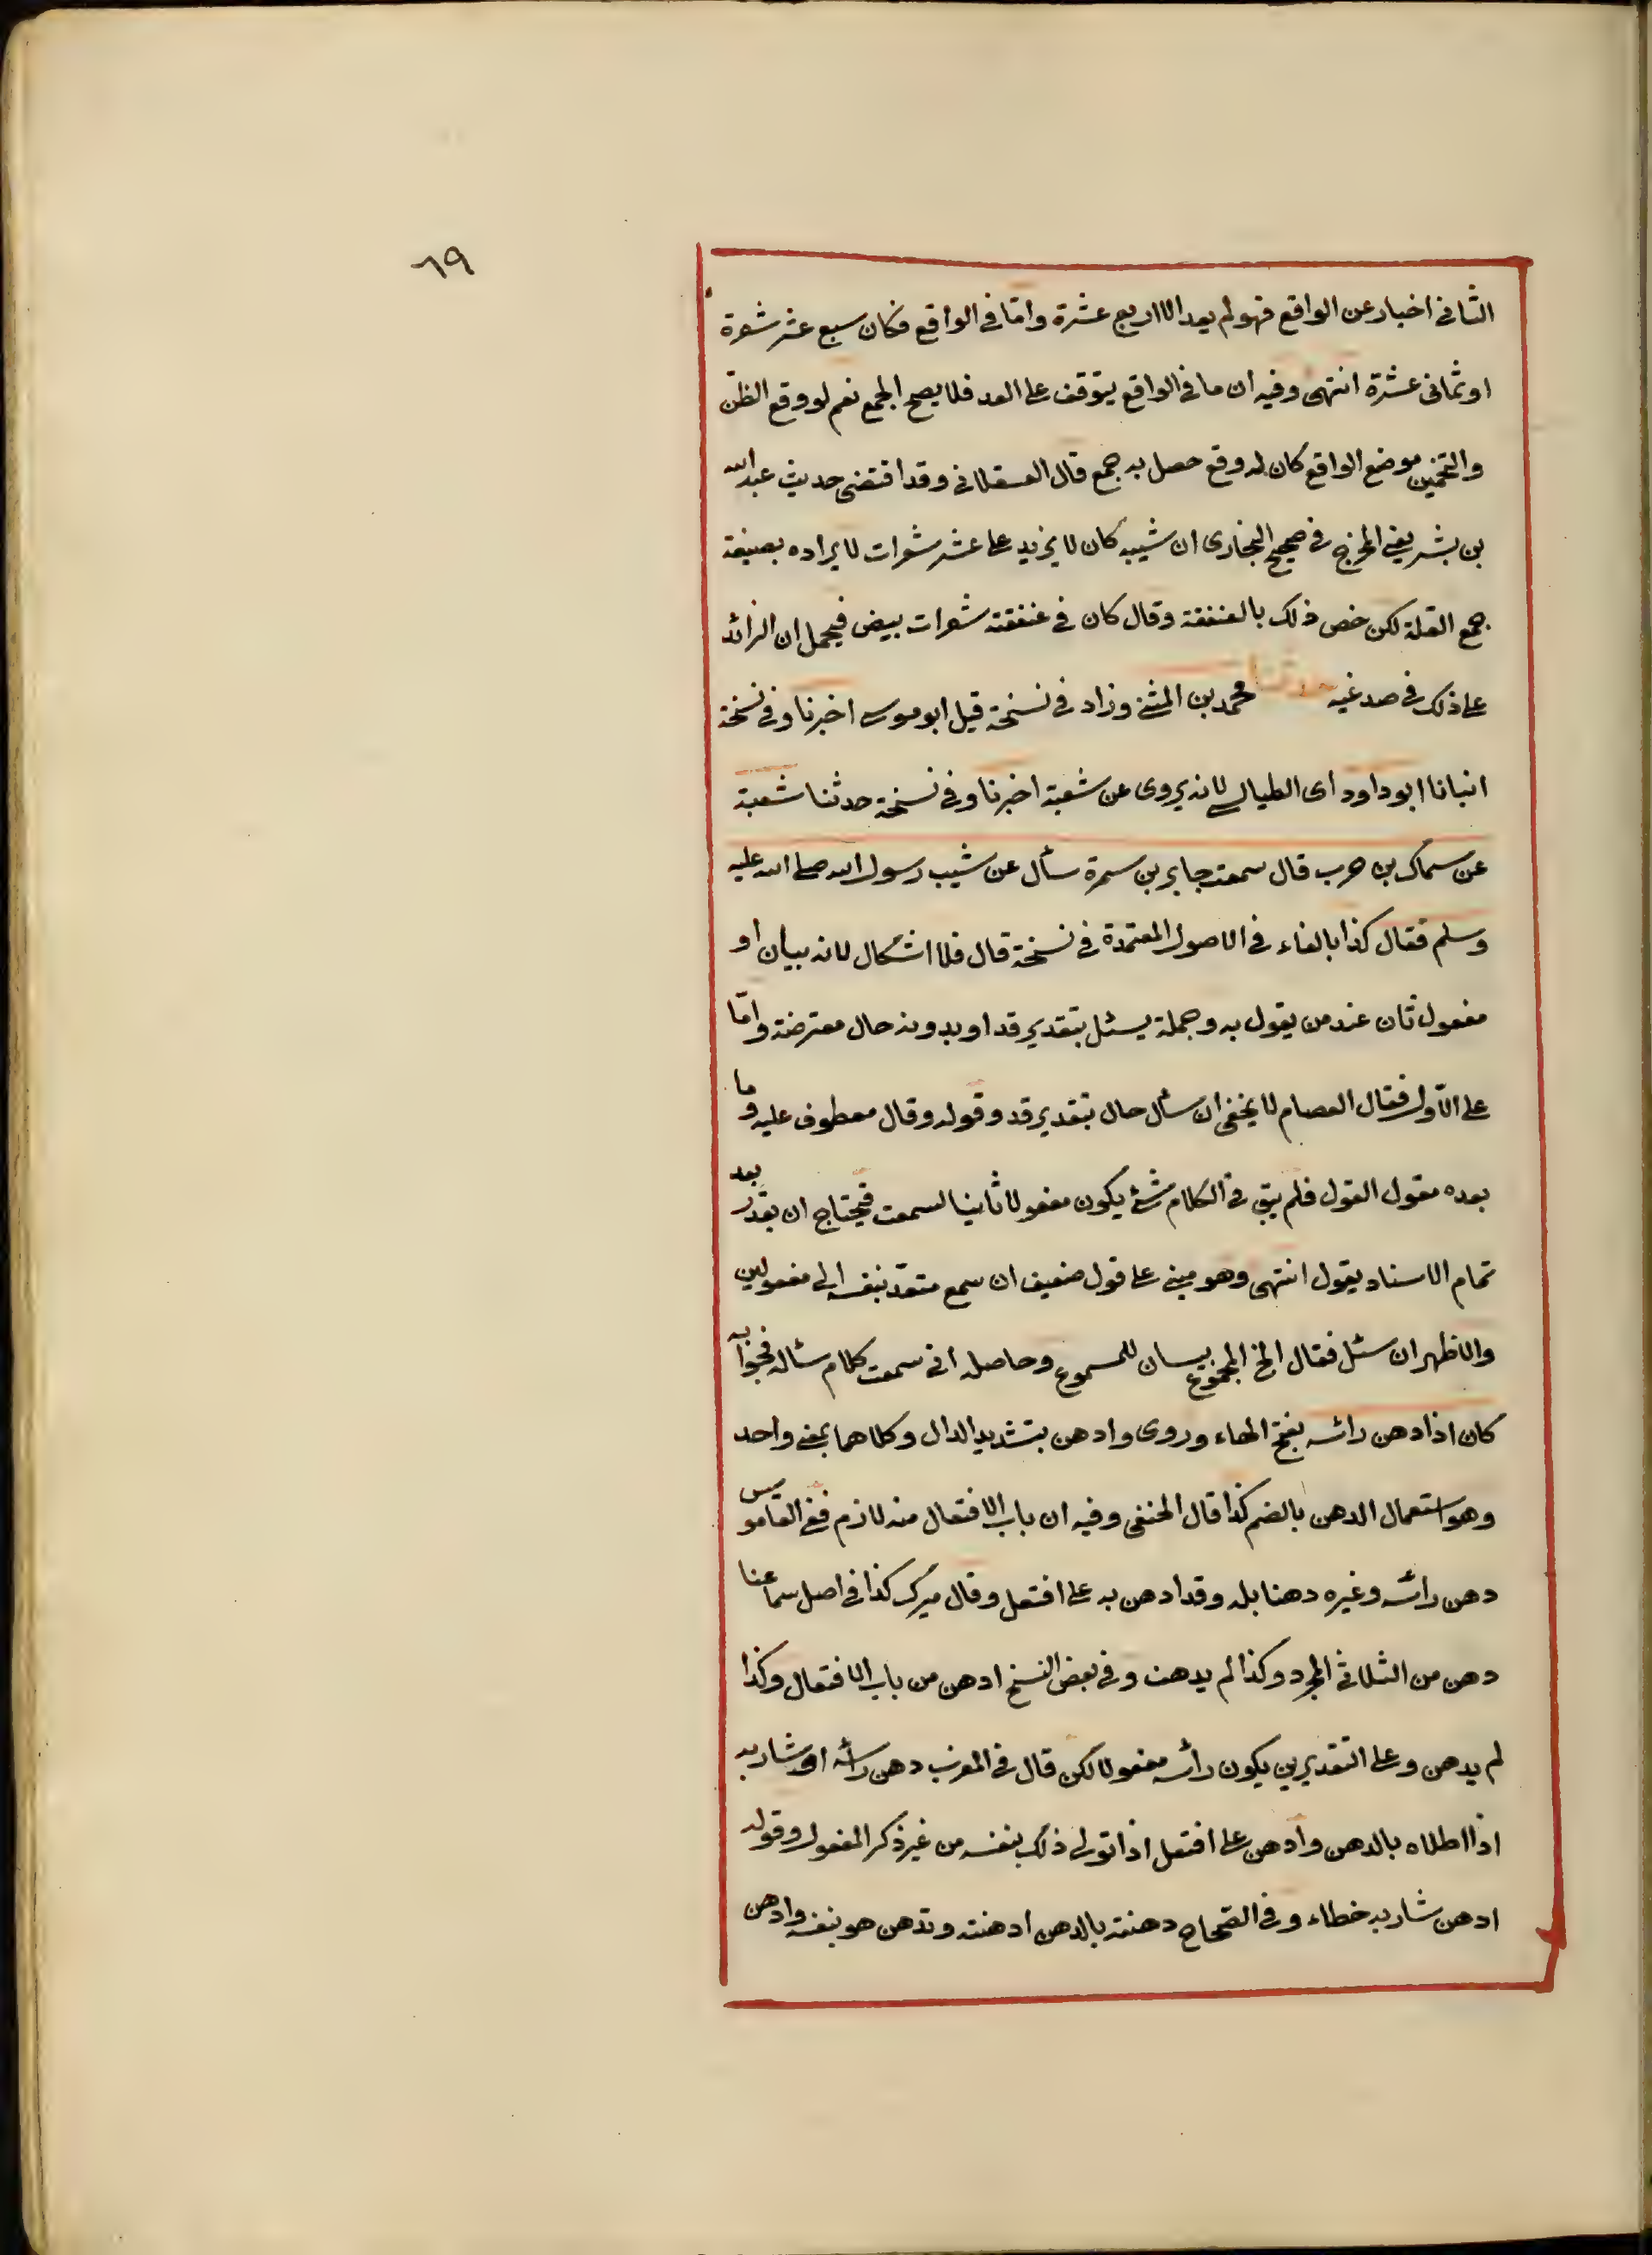 ٦٩
الثانى اخبار عن الواقع فهو لم يعد الا اربع عشرة واما فى الواقع فكان سبع عشر شعرة
او ثمانى عشرة انتهى وفيه ان ما فى الواقع يتوقف على العد فلا يصح الجمع نعم لو وقع الظن
والتخمين موضع الواقع كان له وقع حصل به جمع قال العسقلانى وقد اقتضى حديث عبد الله
بن بشر يعنى المخرج فى صحيح البخارى ان شيبه كان لا يزيد على عشر شعرات لايراده بصيغة
جمع القلة لكن خص ذلك بالعنفقة وقال كان فى عنفقته شعرات بيض فيحمل ان الزائد
على ذلك فى صدغيه حدثنا محمد بن المثنى وزاد فى نسخة قيل ابو موسى اخبرنا وفى نسخة
انبانا ابو داود اى الطيالسى لانه يروى عن شعبة اخبرنا وفى نسخة حدثنا شعبة
عن سماك بن حرب قال سمعت جابر بن سمرة سأل عن شيب رسول الله صلى الله عليه
وسلم فقال كذا بالفاء فى الاصول المعتمدة فى نسخة قال فلا اشكال لانه بيان او
مفعول ثان عند من يقول به وجملة يسئل بتقدير قد او بدونه حال معترضة واما
على الأول فقال العصام لا يخفى ان سأل حال بتقدير قد وقوله وقال معطوف عليه وما
بعده مقول القول فلم يبق فى الكلام شئ يكون مفعولا ثانيا لسمعت فيحتاج ان يقدر بعد
تمام الاسناد يقول انتهى وهو مبنى على قول ضعيف ان سمع متعد بنفسه الى مفعولين
والاظهر ان سئل فقال الخ المجموع بيان للمسموع وحاصله انى سمعت كلام سائله فجوابه
كان اذا دهن رأسه بفتح الهاء وروى وادهن بتشديد الدال وكلاهما بمعنى واحد
وهو استعمال الدهن بالضم كذا قال الحنفى وفيه ان باب الافتعال منه لازم ففى القاموس
دهن رأسه وغيره دهنا بله وقد ادهن به على افتعل وقال ميرك كذا فى اصل سماعنا
دهن من الثلاثى المجرد وكذا لم يدهن وفى بعض النسخ ادهن من باب الافتعال وكذا
لم يدهن وعلى التقديرين يكون رأسه مفعولا لكن قال فى المغرب دهن رأسه او شاربه
اذا اطلاه بالدهن وادهن على افتعل اذا تولى ذلك بنفسه من غير ذكر المفعول وقوله
ادهن شاربه خطاء وفى الصحاح دهنته بالدهن ادهنته وتدهن هو بنفسه وادهن